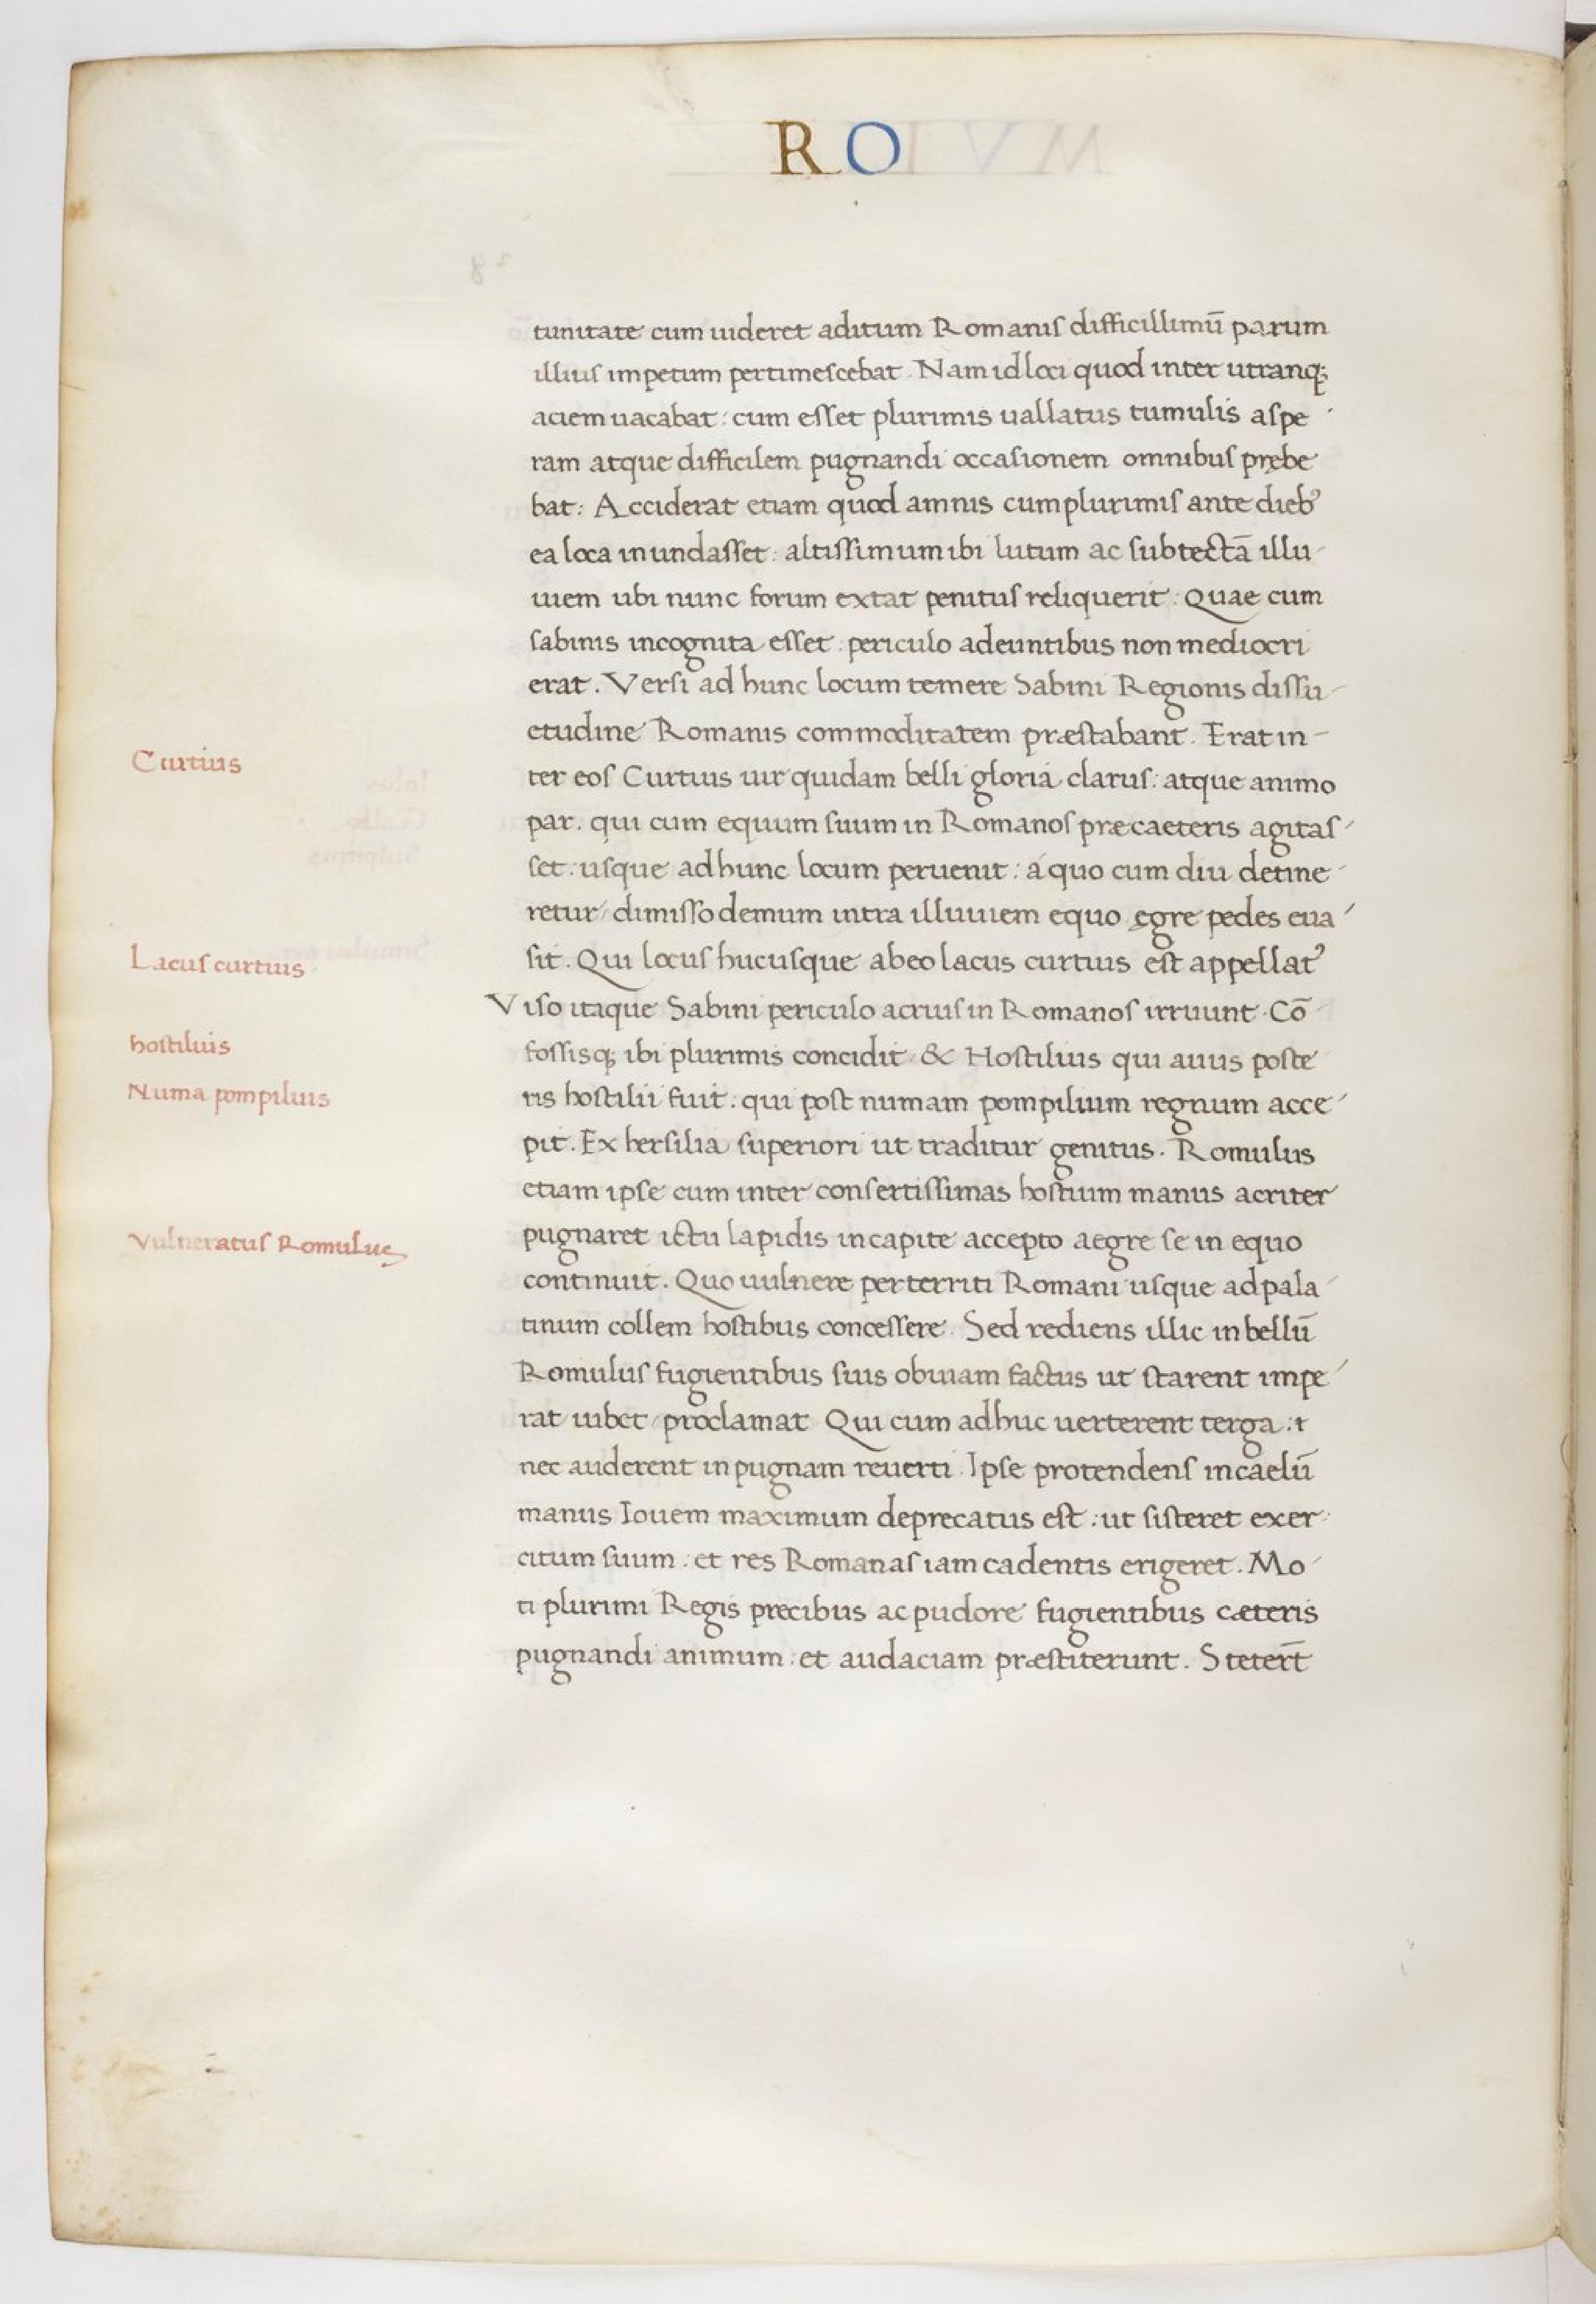 RO
tunitate cum uideret aditum Romanis difficillimū parum
illius impetum pertimescebat. Nam id loci quod inter utranq;
aciem uacabat: cum esset plurimis uallatus tumulis aspe
ram atque difficilem pugnandi occasionem omnibus prębe
bat: Acciderat etiam quod amnis cum plurimis ante dieb᾿
ea loca inundasset: altissimum ibi lutum ac subtectā illu-
uiem ubi nunc forum extat penitus reliquerit: Quae cum
sabinis incognita esset: periculo adeuntibus non mediocri
erat. Versi ad hunc locum temere Sabini Regionis dissu-
etudine Romanis commoditatem præstabant. Erat in-
Curtius
ter eos Curtius uir quidam belli gloria clarus: atque animo
par. qui cum equum suum in Romanos præ caeteris agitas-
set: usque ad hunc locum peruenit: á quo cum diu detine-
retur/ dimisso demum intra illuuiem equo ęgre pedes eua-
Lacus curtius
sit. Qui locus hucusque ab eo lacus curtius est appellat᾿
Viso itaque Sabini periculo acrius in Romanos irruunt. Cō-
hostilius
fossisq; ibi plurimis concidit & Hostilius qui auus poste
Numa pompilius
ris hostilii fuit: qui post numam pompilium regnum acce-
pit. Ex hersilia superiori ut traditur genitus. Romulus
etiam ipse cum inter consertissimas hostium manus acriter
Vulneratus Romulus
pugnaret ictu lapidis in capite accepto aegre se in equo
continuit. Quo uulnere perterriti Romani usque ad pala-
tinum collem hostibus concessere. Sed rediens illic in bellū
Romulus fugientibus suis obuiam factus ut starent impe-
rat iubet/ proclamat Qui cum adhuc uerterent terga: &
nec auderent in pugnam reuerti. Ipse protendens in caelū
manus Iouem maximum deprecatus est: ut sisteret exer-
citum suum: et res Romanas iam cadentis erigeret. Mo-
ti plurimi Regis precibus ac pudore fugientibus cæteris
pugnandi animum: et audaciam præstiterunt. Stetert̄